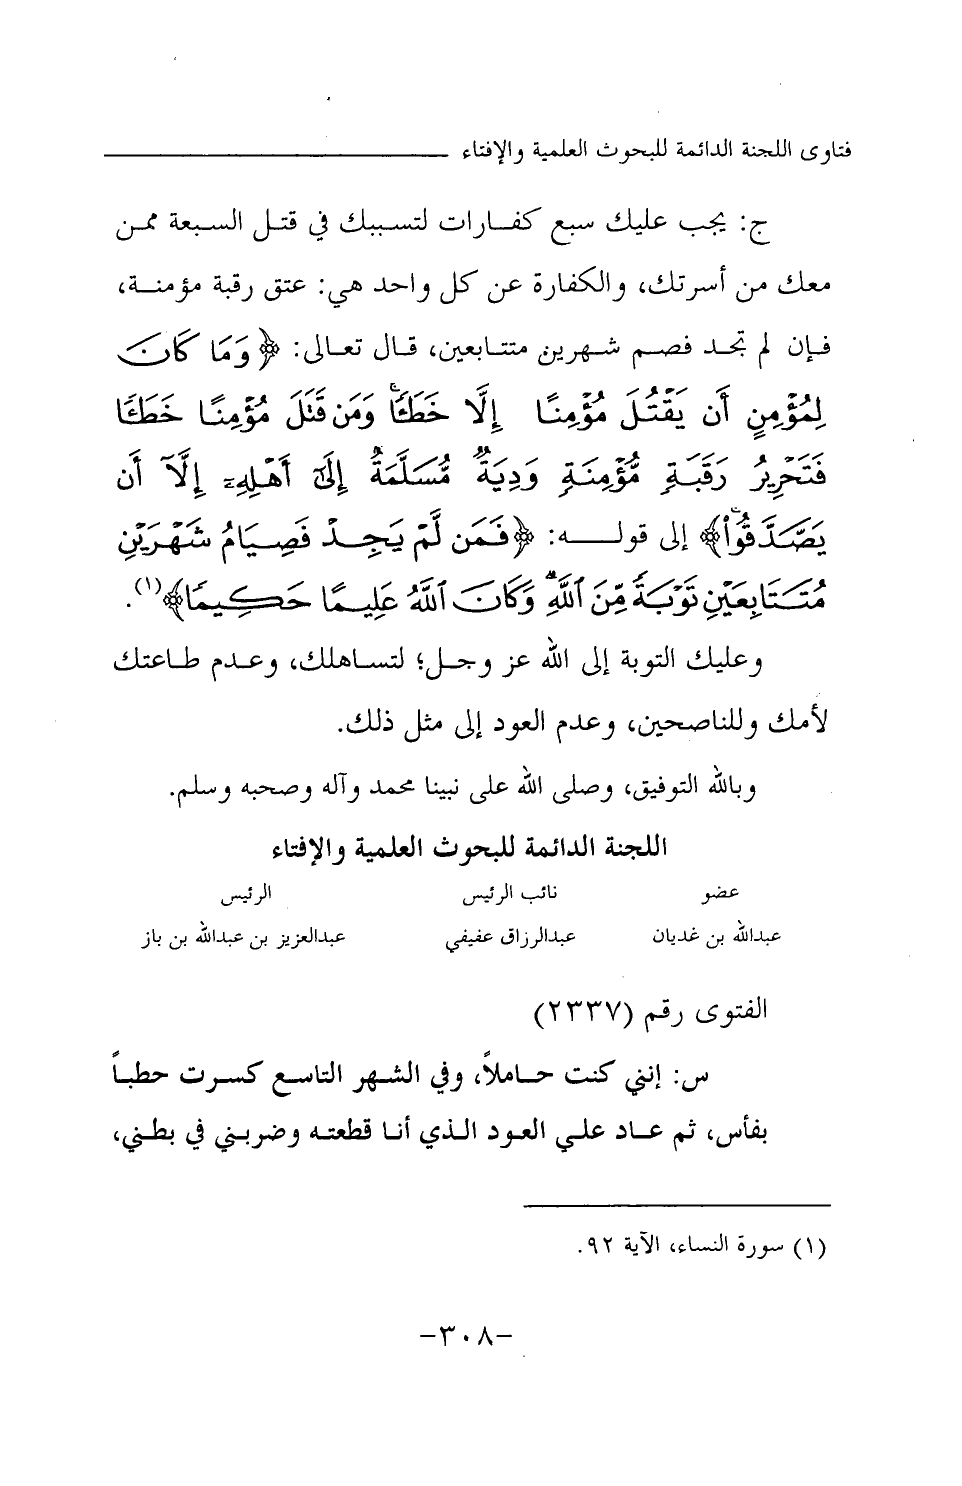 فتاوى اللجنة الدائمة للبحوث العلمية والإفتاء
ج: يجب عليك سبع كفارات لتسببك في قتل السبعة ممن
معك من أسرتك، والكفارة عن كل واحد هي: عتق رقبة مؤمنة،
فإن لم تجد فصم شهرين متتابعين، قال تعالى: ﴿وَمَا كَانَ
لِمُؤْمِنٍ أَن يَقْتُلَ مُؤْمِنًا إِلَّا خَطَـًٔا ۚ وَمَن قَتَلَ مُؤْمِنًا خَطَـًٔا
فَتَحْرِيرُ رَقَبَةٍ مُّؤْمِنَةٍ وَدِيَةٌ مُّسَلَّمَةٌ إِلَىٰٓ أَهْلِهِۦٓ إِلَّآ أَن
يَصَّدَّقُوا۟ ۚ﴾ إلى قوله: ﴿فَمَن لَّمْ يَجِدْ فَصِيَامُ شَهْرَيْنِ
مُتَتَابِعَيْنِ تَوْبَةً مِّنَ ٱللَّهِ ۗ وَكَانَ ٱللَّهُ عَلِيمًا حَكِيمًا﴾(١).
وعليك التوبة إلى الله عز وجل؛ لتساهلك، وعدم طاعتك
لأمك وللناصحين، وعدم العود إلى مثل ذلك.
وبالله التوفيق، وصلى الله على نبينا محمد وآله وصحبه وسلم.
اللجنة الدائمة للبحوث العلمية والإفتاء
عضو نائب الرئيس الرئيس
عبدالله بن غديان عبدالرزاق عفيفي عبدالعزيز بن عبدالله بن باز
الفتوى رقم (٢٣٣٧)
س: إنني كنت حاملاً، وفي الشهر التاسع كسرت حطباً
بفأس، ثم عاد علي العود الذي أنا قطعته وضربني في بطني،
(١) سورة النساء، الآية ٩٢.
-٣٠٨-